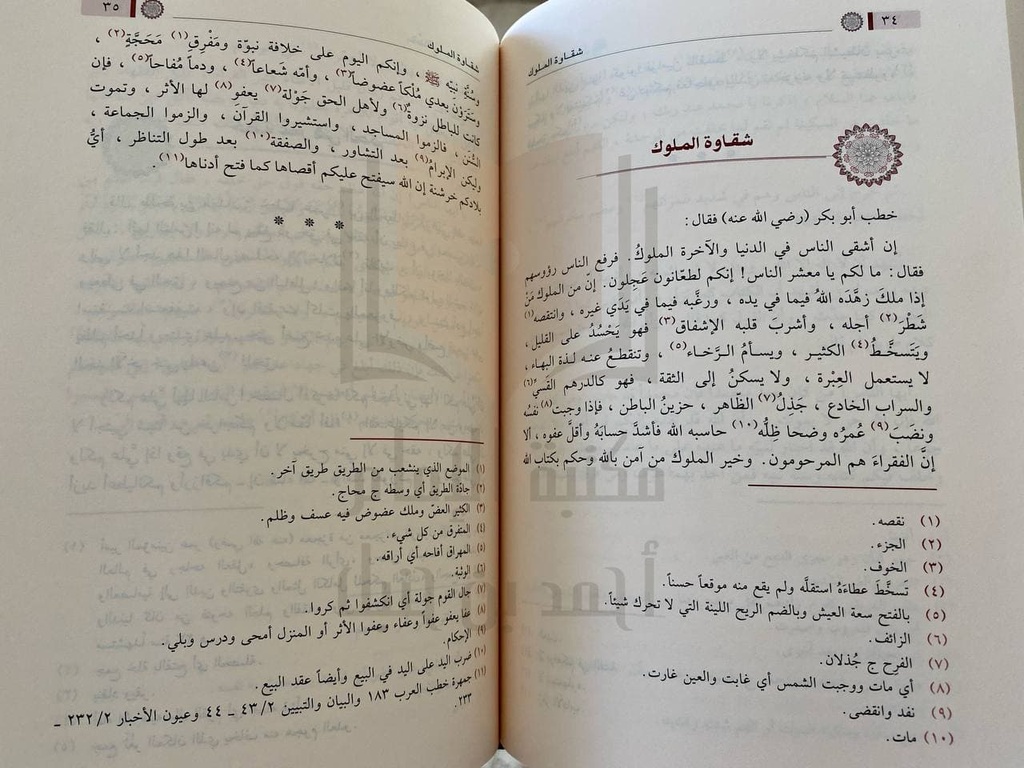 ٣٤
شقاوة الملوك
شقاوة الملوك
خطب أبو بكر (رضي الله عنه) فقال:
إن أشقى الناس في الدنيا والآخرة الملوكُ. فرفع الناس رؤوسهم
فقال: ما لكم يا معشر الناس! إنكم لطعّانون عَجلون. إنّ من الملوك مَنْ
إذا ملكَ زهَّدَه اللهُ فيما في يده، ورغَّبه فيما في يَدَي غيره، وانتقصه(١)
شَطْرَ(٢) أجله، وأشربَ قلبه الإشفاق(٣) فهو يَحْسُدُ على القليل،
ويَتَسخَّطُ(٤) الكثير، ويسأمُ الـرَّخاء(٥)، وتنقطعُ عنه لـذة البهاء،
لا يستعمل العِبْرة، ولا يسكنُ إلى الثقة، فهو كالدرهم القَسيِّ(٦)
والسراب الخادع، جَذِلُ(٧) الظّاهر، حزينُ الباطن، فإذا وجبت(٨) نفسُه
ونضَبَ(٩) عُمرُه وضحا ظِلُّه(١٠) حاسبه الله فأشدَّ حسابَهُ وأقلَّ عفوه، ألا
إنَّ الفقراءَ هم المرحومون. وخير الملوك من آمن بالله وحكم بكتاب الله
(١) نقصه.
(٢) الجزء.
(٣) الخوف.
(٤) تَسخَّطَ عطاءَهُ استقلَّه ولم يقع منه موقعاً حسناً.
(٥) بالفتح سعة العيش وبالضم الريح اللينة التي لا تحرك شيئاً.
(٦) الزائف.
(٧) الفرح ج جُذلان.
(٨) أي مات ووجبت الشمس أي غابت والعين غارت.
(٩) نفد وانقضى.
(١٠) مات.
٣٥
شقاوة الملوك
وسُنَّة نبيّه ﷺ، وإنكم اليوم على خلافة نبوّة ومَفْرِق(١) مَحَجَّةٍ(٢)،
وسَتَرَوْن بعدي مُلْكاً عضوضاً(٣)، وأمّه شَعاعاً(٤)، ودماً مُفاحاً(٥)، فإن
كانت للباطل نزوةٌ(٦) ولأهل الحق جَوْلة(٧) يعفو(٨) لها الأثر، وتموت
السُّنن، فالزموا المساجد، واستشيروا القرآن، والزموا الجماعة،
وليكن الإبرامُ(٩) بعد التشاور، والصفقة(١٠) بعد طول التناظر، أيُّ
بلادكم خرشنة إن الله سيفتح عليكم أقصاها كما فتح أدناها(١١).
* * *
(١) الموضع الذي ينشعب من الطريق طريق آخر.
(٢) جادّة الطريق أي وسطه ج محاج.
(٣) الكثير العضّ وملك عضوض فيه عسف وظلم.
(٤) المنفرق من كل شيء.
(٥) المهراق أفاحه أي أراقه.
(٦) الوثبة.
(٧) جال القوم جولة أي انكشفوا ثم كروا.
(٨) عفا يعفو عفواً وعفاء وعفوا الأثر أو المنزل أمحى ودرس وبلي.
(٩) الإحكام.
(١٠) ضرب اليد على اليد في البيع وأيضاً عقد البيع.
(١١) جمهرة خطب العرب ١٨٣ والبيان والتبيين ٤٣/٢ – ٤٤ وعيون الأخبار ٢٣٢/٢ –
٢٣٣.